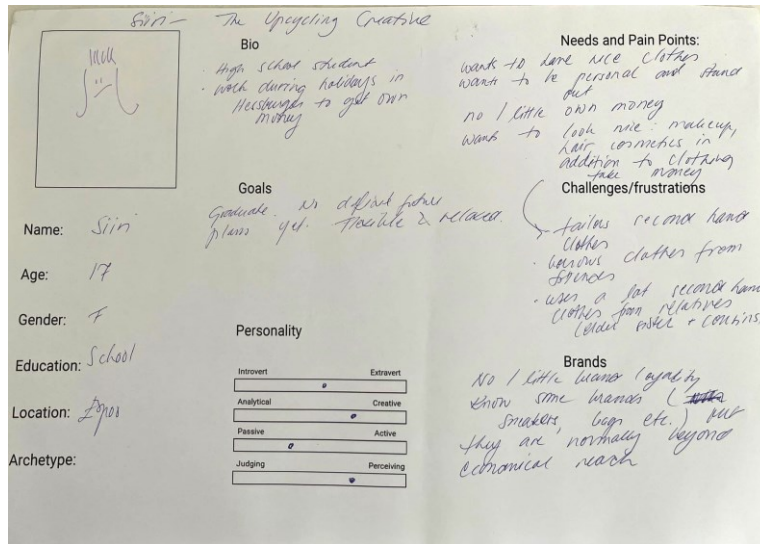 Siiri - The Upcycling Creative
Bio
· High school student
· work during holidays in
Hesburger to get own
money
Needs and Pain Points:
wants to have nice clothes
wants to be personal and stand
out
no / little own money
wants to look nice: makeup,
hair cosmetics in
addition to clothing
take money
Goals
Graduate. No defined future
plans yet. Flexible & relaxed.
Challenges/frustrations
- tailors second hand
clothes
· borrows clothes from
friends
· uses a lot second hand
clothes from relatives
(older sister + cousins)
Name: Siiri
Age: 17
Gender: F
Education: School
Location: Espoo
Archetype:
Personality
Introvert Extravert
Analytical Creative
Passive Active
Judging Perceiving
Brands
No / little brand loyality
know some brands (
sneakers, bags etc.) but
they are normally beyond
economical reach